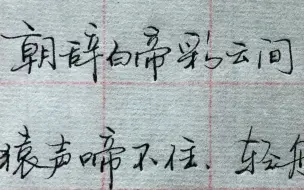 朝辞白帝彩云间
猿声啼不住、轻舟